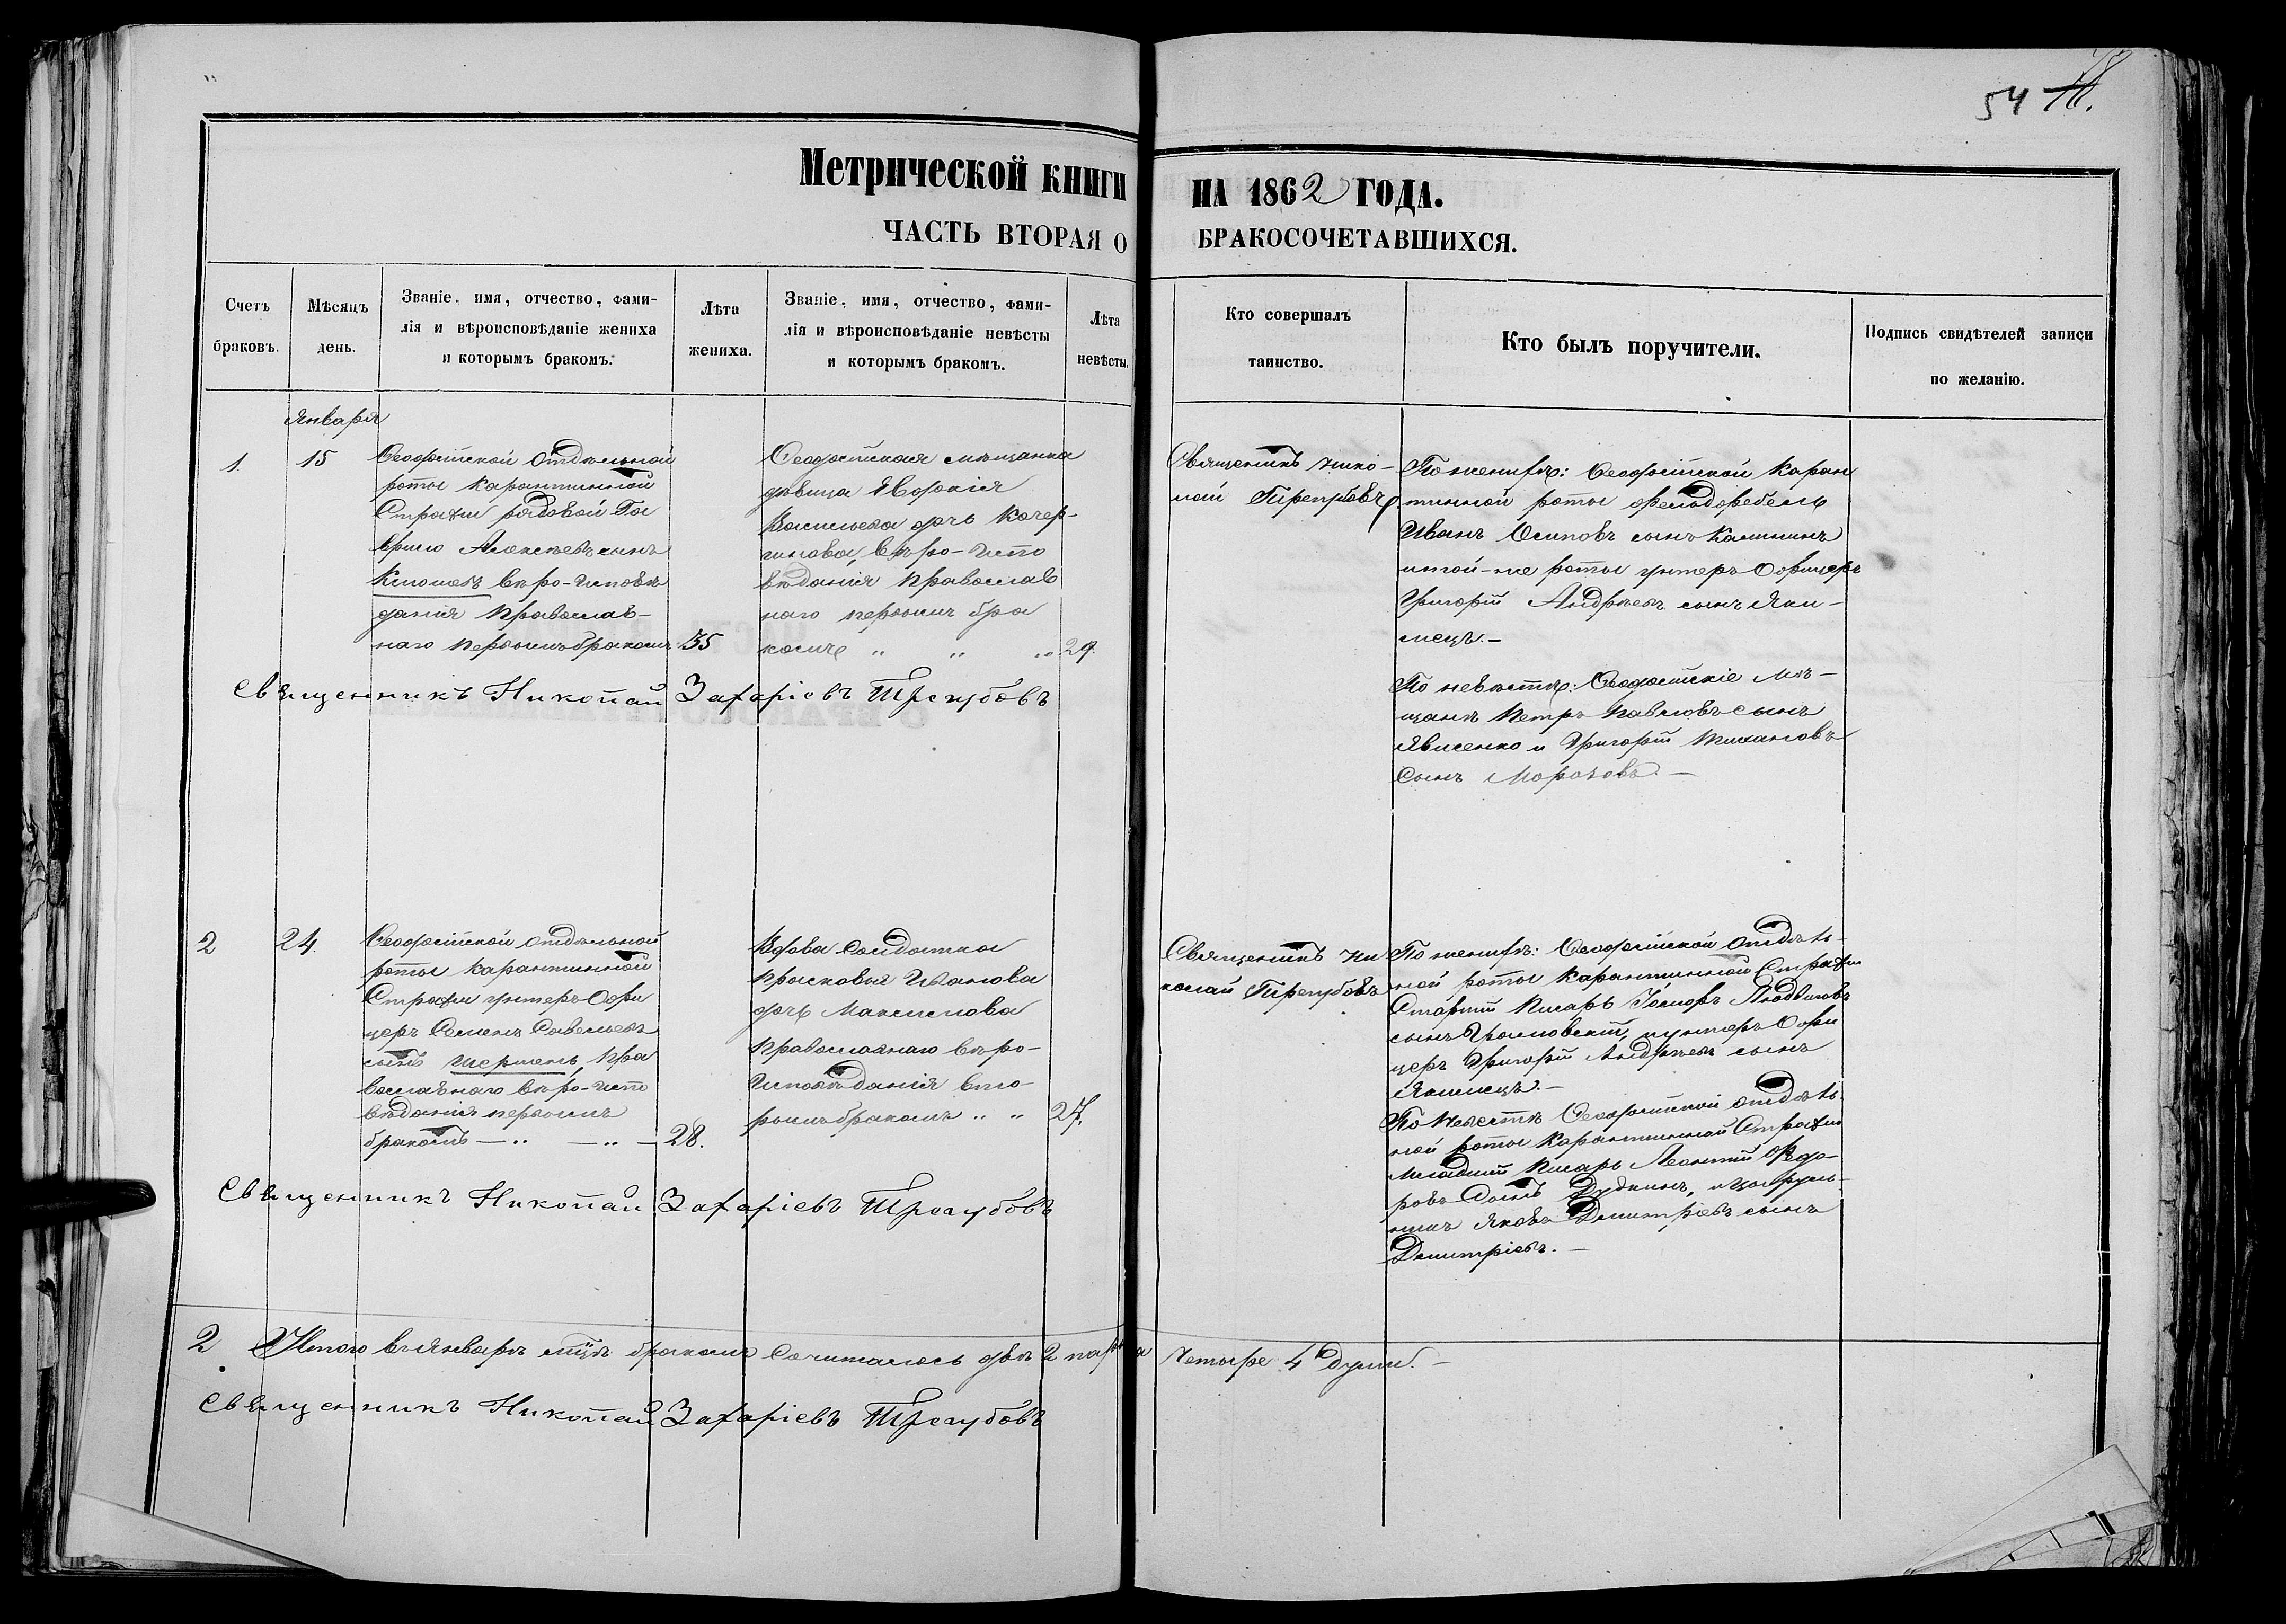 54
Метрической книги
НА 1862 ГОДА.
ЧАСТЬ ВТОРАЯ О
БРАКОСОЧЕТАВШИХСЯ.
Счетъ
браковъ.
Мѣсяцъ
день.
Званіе, имя, отчество, фами-
лія и вѣроисповѣданіе жениха
и которымъ бракомъ.
Лѣта
жениха.
Званіе, имя, отчество, фами-
лія и вѣроисповѣданіе невѣсты
и которымъ бракомъ.
Лѣта
невѣсты.
Кто совершалъ
таинство.
Кто былъ поручители.
Подпись свидѣтелей записи
по желанію.
Января
1.
15
Ѳеодосійской отдѣльной
роты карантинной
Стражи рядовой Га
врило Алексѣевъ сынъ
вѣро-исповѣ
данія православ-
наго первымъ бракомъ
35
Ѳеодосійская мѣщанка
дѣвица
Васильева дочь Кочер-
гинова, вѣро-испо
вѣданія православ
наго первымъ бра
комъ " " "
29.
Священникъ Нико-
лай Трегубовъ
По женихѣ: Ѳеодосійской Каран
тинной роты фельдфебель
Иванъ Осиповъ сынъ Калининъ
и той-же роты унтеръ Офицеръ
Григорій Андреевъ сынъ Яки-
мецъ.-
По невѣстѣ: Ѳеодосійскіе мѣ-
щане Петръ Павловъ сынъ
и Григорій
Сынъ Морозовъ. -
Священникъ Николай Захаріевъ Трегубовъ
2
24.
Ѳеодосійской отдѣльной
роты карантинной
Стражи унтеръ-Офи
церъ Семенъ Савельевъ
сынъ Шершень, пра
вославнаго вѣро-испо
вѣданія первымъ
бракомъ - " - " -
28.
Вдова Солдатка
Прасковья Иванова
дочь Максимова
православнаго вѣро-
исповѣданія вто-
рымъ бракомъ " "
27.
Священникъ Ни
колай Трегубовъ
По женихѣ: Ѳеодосійской отдѣль-
ной роты карантинной Стражи
Старшій писарь Людвиговъ
сынъ и унтеръ Офи
церъ Григорій Андреевъ сынъ
Якимецъ. -
По невѣстѣ Ѳеодосійской отдѣль
ной роты карантинной Стражи
Младшій писарь Леонтій Ѳедо-
ровъ сынъ Дудкинъ, и цырюль-
никъ Яковъ Дмитріевъ сынъ
Дмитріевъ. -
Священникъ Николай Захаріевъ Трегубовъ
2 Итого въ Январѣ м-цѣ бракомъ сочиталось двѣ 2 пары а четыре 4 души. -
Священникъ Николай Захаріевъ Трегубовъ